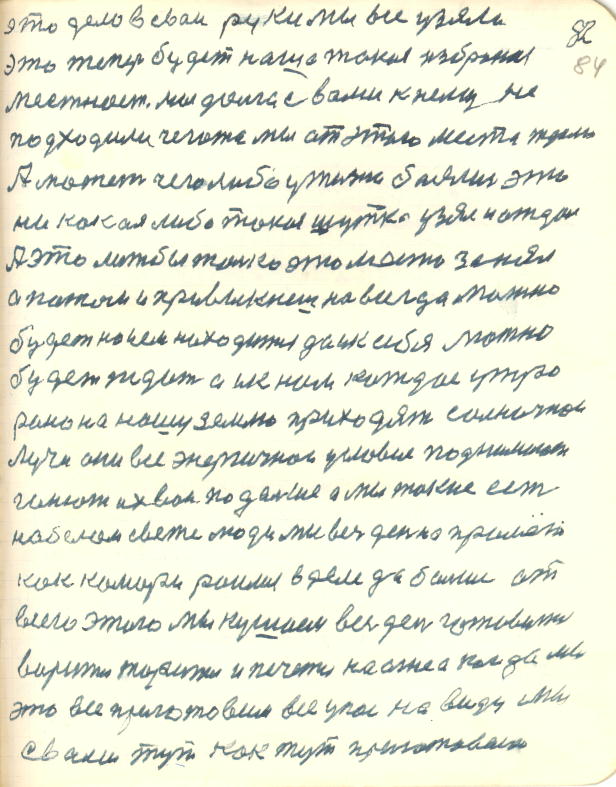 это дело в свои руки мы все узяли
82
84
это тепер будет наша такая избраная
местност. мы долга с вами к нему не
подходили чегота мы от этого места ждали
А может чеголибо ужижи боялис это
ни какая либо такая шутка узял и ождал
А это лижбы толко это место занял
а патом и привикнеш навсегда можно
будет на нем находится да и к себя можно
будет ждат а и к нам каждае утро
рано на нашу землю приходят солначнои
лучи они все энергичнои условия поднимают
гонют их вои подалше а мы такие ест
на белом свете люди мы вес ден на
как комари роимся в деле да болии от
всего этого мы кушаем вес ден готовити
варити жарити и печети на огне а когда мы
это все приготовим все упос на виду мы
с вами тут как тут приготоваем